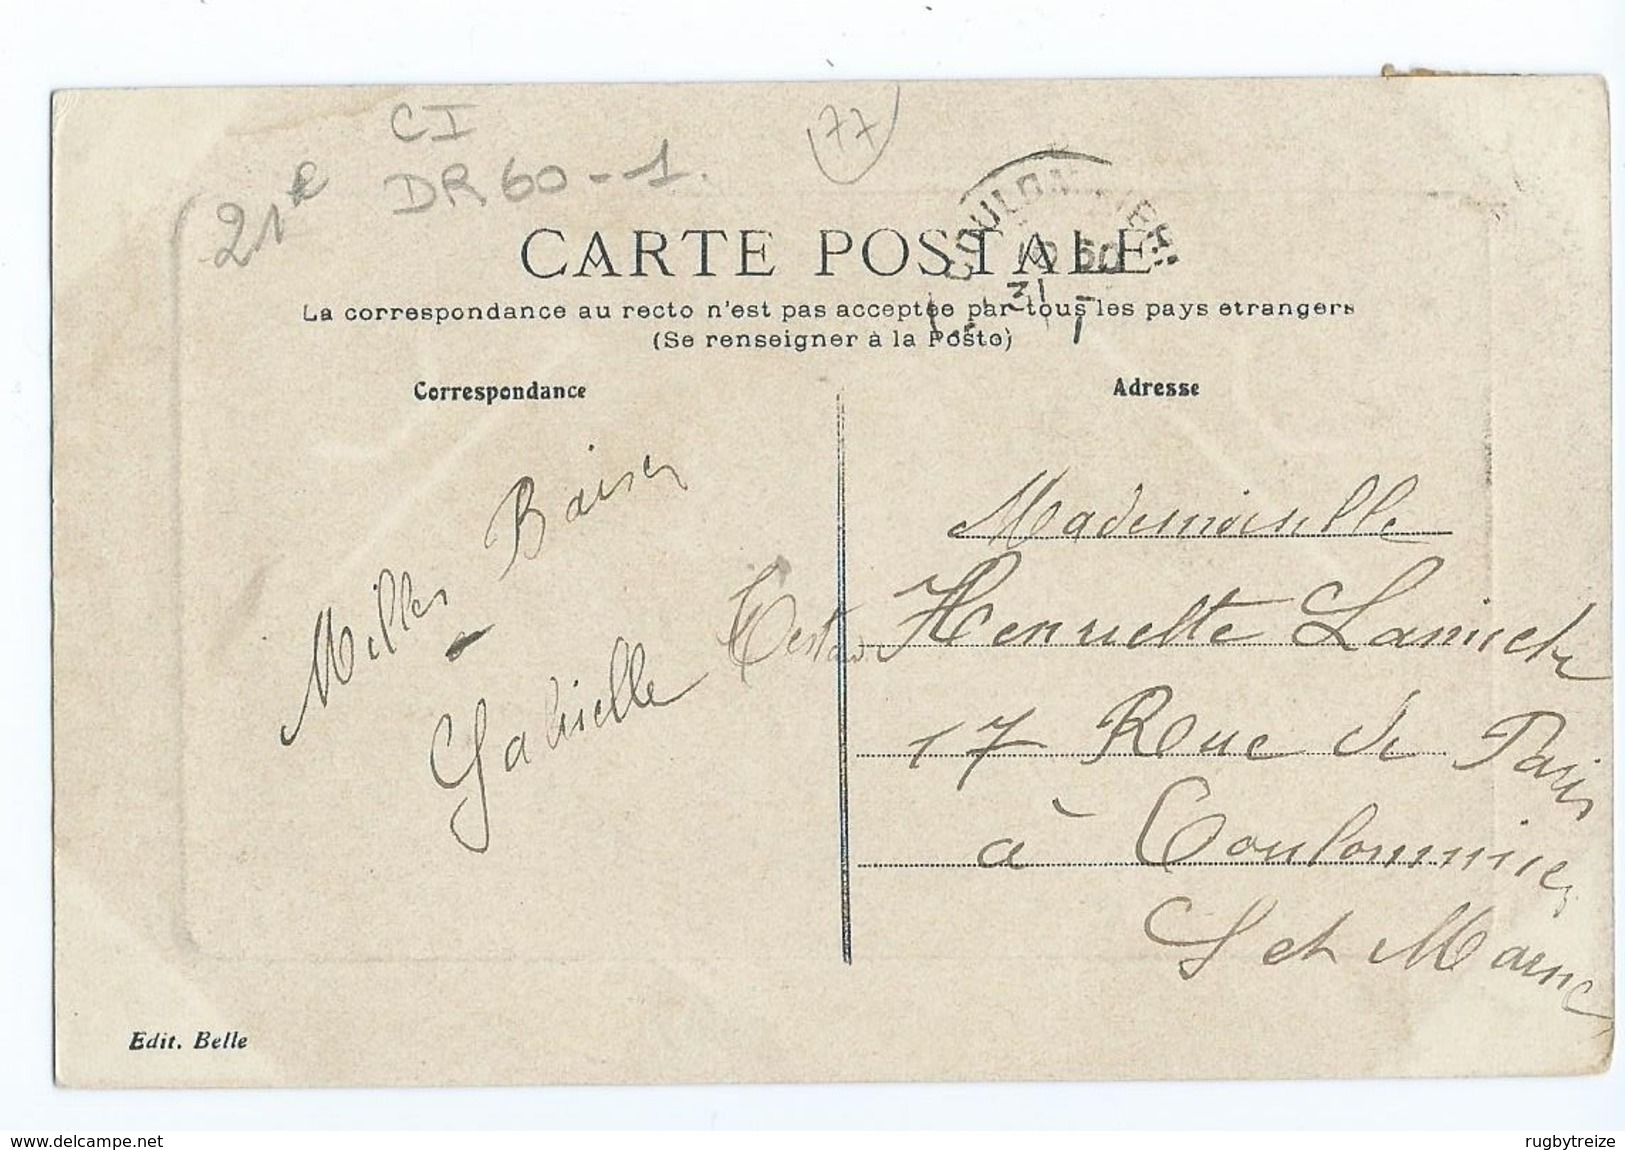 CI
DR 60--1.
21e
77
CARTE POSTALE
La correspondance au recto n'est pas acceptée par tous les pays etrangers
(Se renseigner à la Poste)
Correspondance
Adresse
Milles Baisers
Gabrielle
Mademoiselle
Henriette
17 Rue de Paris
à Coulommiers
S et Marne
Edit. Belle
www.delcampe.net
rugbytreize